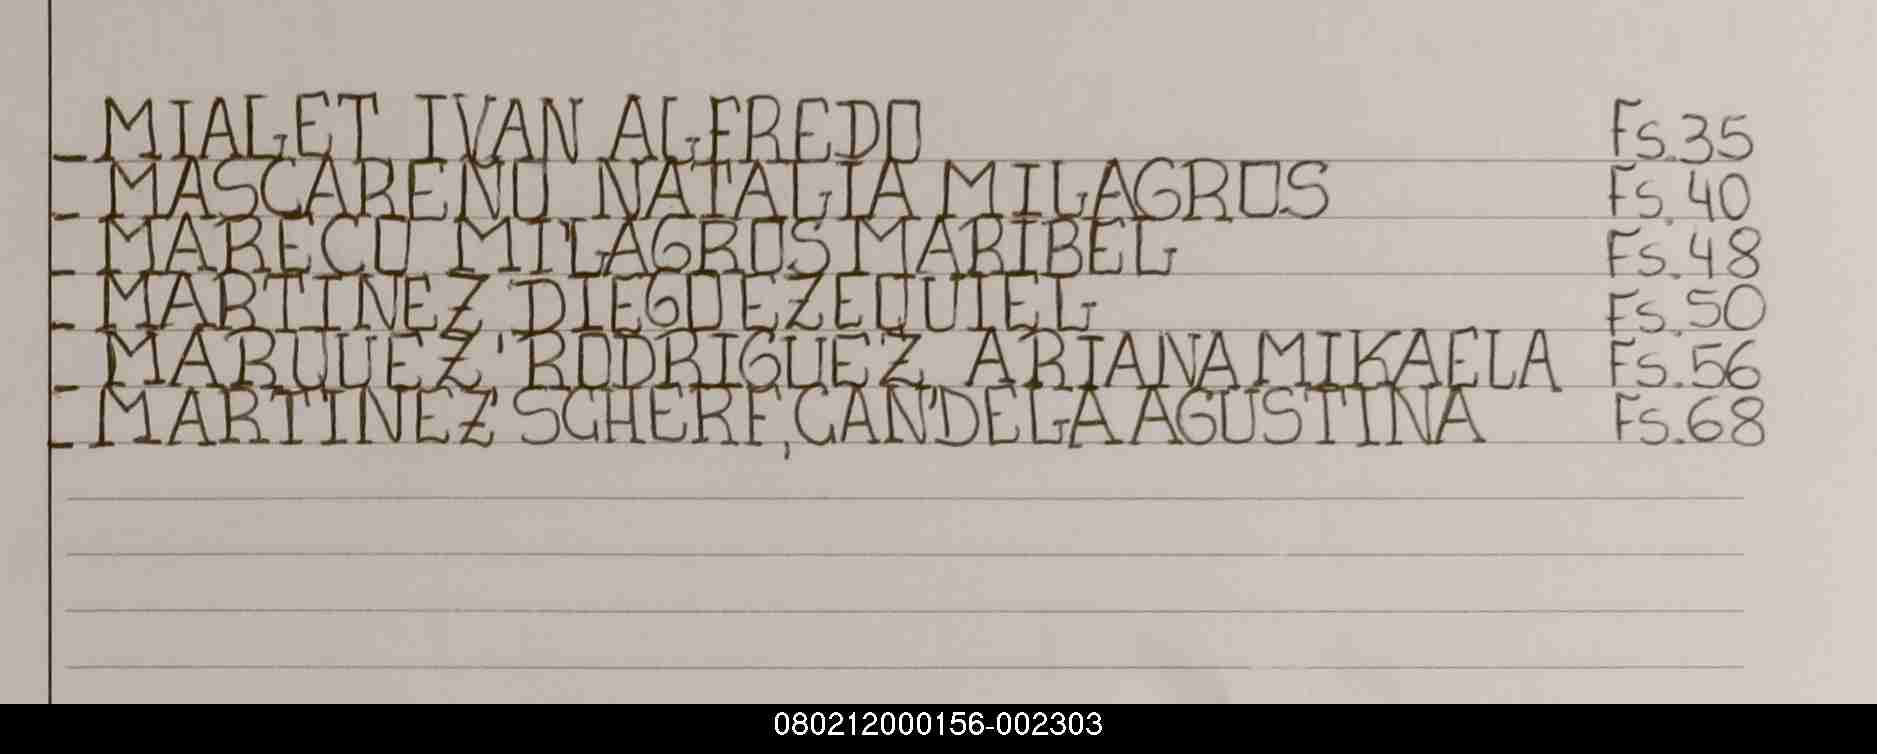 - MIALET IVAN ALFREDO Fs.35
- MASCARENO NATALIA MILAGROS Fs.40
- MARECO MILAGROS MARIBEL Fs.48
- MARTINEZ, DIEGO EZEQUIEL Fs.50
- MARQUEZ, RODRIGUEZ, ARIANA MIKAELA Fs.56
- MARTINEZ SCHERF, CANDELA AGUSTINA Fs.68
080212000156-002303